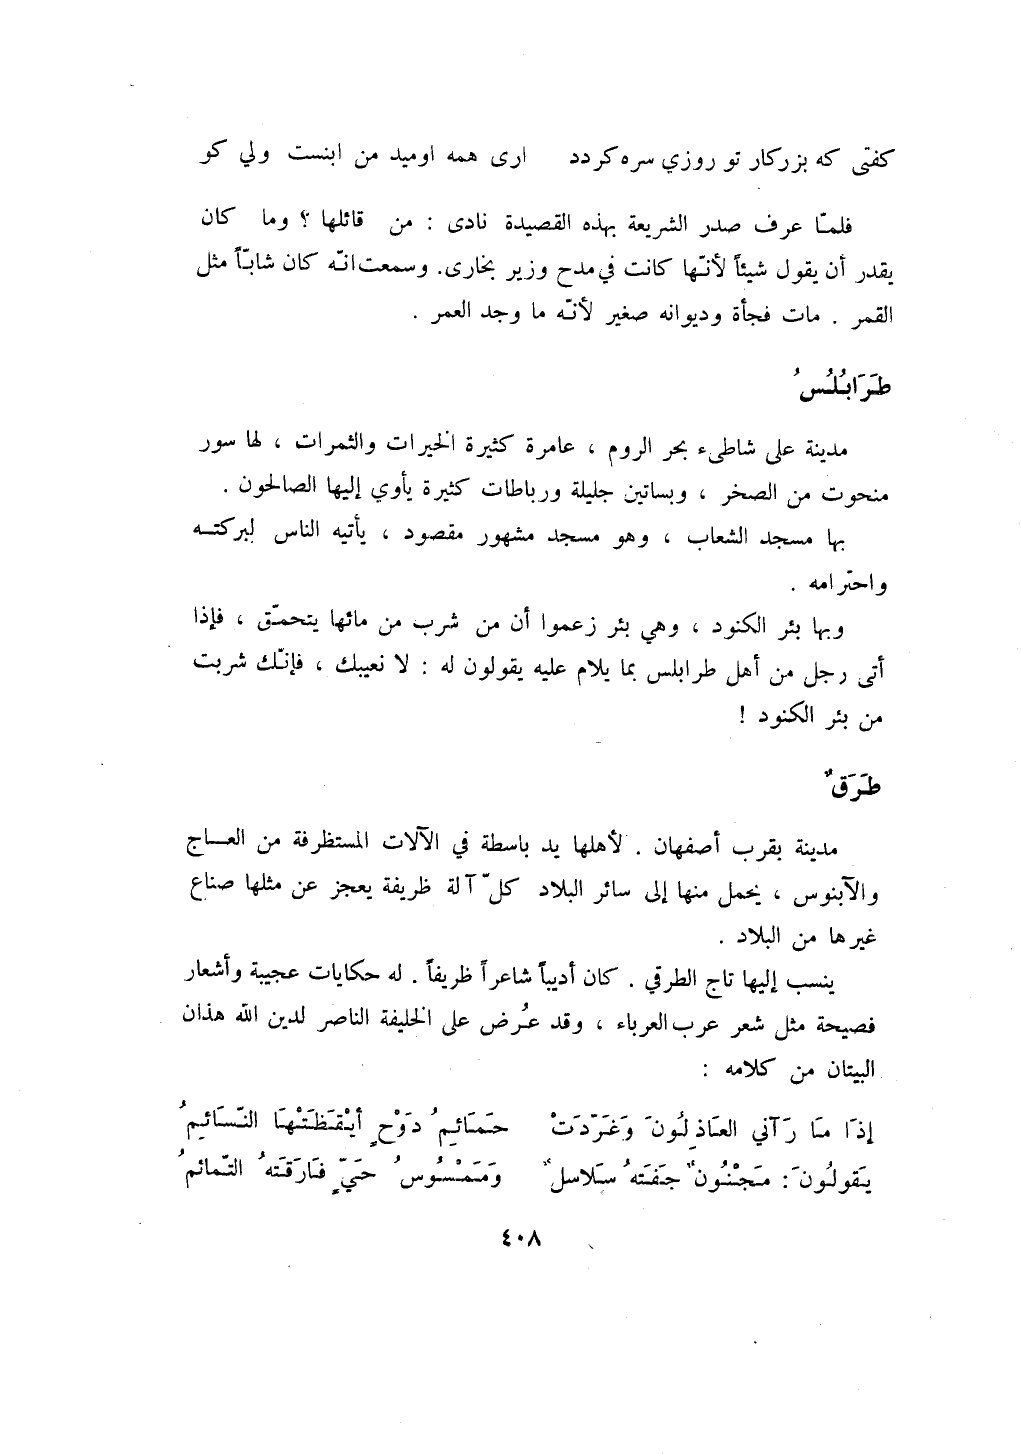 كفتى كه بزركار تو روزي سره كردد    ارى همه اوميد من ابنست ولي كو
فلمّا عرف صدر الشريعة بهذه القصيدة نادى : من قائلها ؟ وما كان
يقدر أن يقول شيئاً لأنّها كانت في مدح وزير بخارى. وسمعت انّه كان شابّاً مثل
القمر . مات فجأة وديوانه صغير لأنّه ما وجد العمر .
طَرَابُلُسُ
مدينة على شاطىء بحر الروم ، عامرة كثيرة الخيرات والثمرات ، لها سور
منحوت من الصخر ، وبساتين جليلة ورباطات كثيرة يأوي إليها الصالحون .
بها مسجد الشعاب ، وهو مسجد مشهور مقصود ، يأتيه الناس لبركتـه
واحترامه .
وبها بئر الكنود ، وهي بئر زعموا أن من شرب من مائها يتحمّق ، فإذا
أتى رجل من أهل طرابلس بما يلام عليه يقولون له : لا نعيبك ، فإنّك شربت
من بئر الكنود !
طَرَقٌ
مدينة بقرب أصفهان . لأهلها يد باسطة في الآلات المستظرفة من العـاج
والآبنوس ، يحمل منها إلى سائر البلاد كلّ آلة ظريفة يعجز عن مثلها صناع
غيرها من البلاد .
ينسب إليها تاج الطرقي . كان أديباً شاعراً ظريفاً . له حكايات عجيبة وأشعار
فصيحة مثل شعر عرب العرباء ، وقد عُرض على الخليفة الناصر لدين الله هذان
البيتان من كلامه :
إذَا مَا رَآني العَاذِلُونَ وَغَرّدَتْ    حَمَائِمُ دَوْحٍ أيْقَظَتْهَا النّسَائِمُ
يَقولُونَ : مَجْنُونٌ جَفَتهُ سَلاسلٌ    وَمَمْسُوسُ حَيٍّ فَارَقَتهُ التّمائمُ
٤٠٨